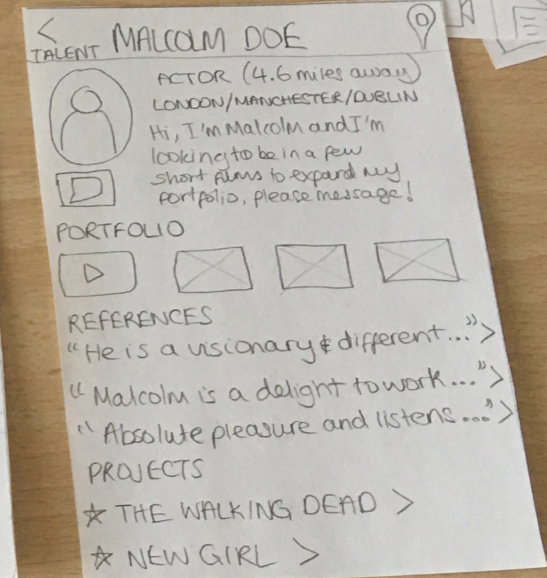 < MALCOLM DOE
TALENT
ACTOR (4.6 miles away)
LONDON/MANCHESTER/DUBLIN
Hi, I'm Malcolm and I'm
looking to be in a few
short films to expand my
portfolio, please message!
PORTFOLIO
REFERENCES
"He is a visionary & different..." >
"Malcolm is a delight to work..." >
"Absolute pleasure and listens..." >
PROJECTS
☆ THE WALKING DEAD >
☆ NEW GIRL >